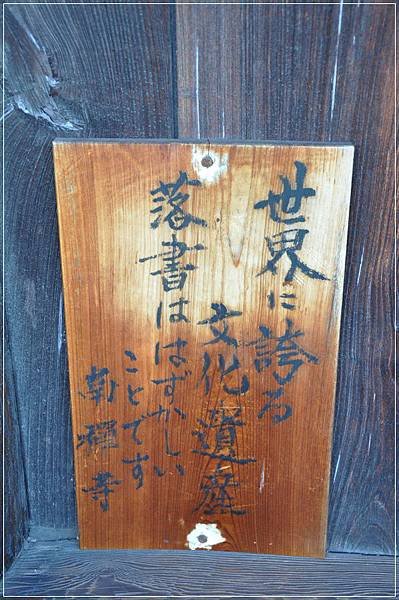 世界に誇る
文化遺産
落書ははずかしい
ことです
南禅寺